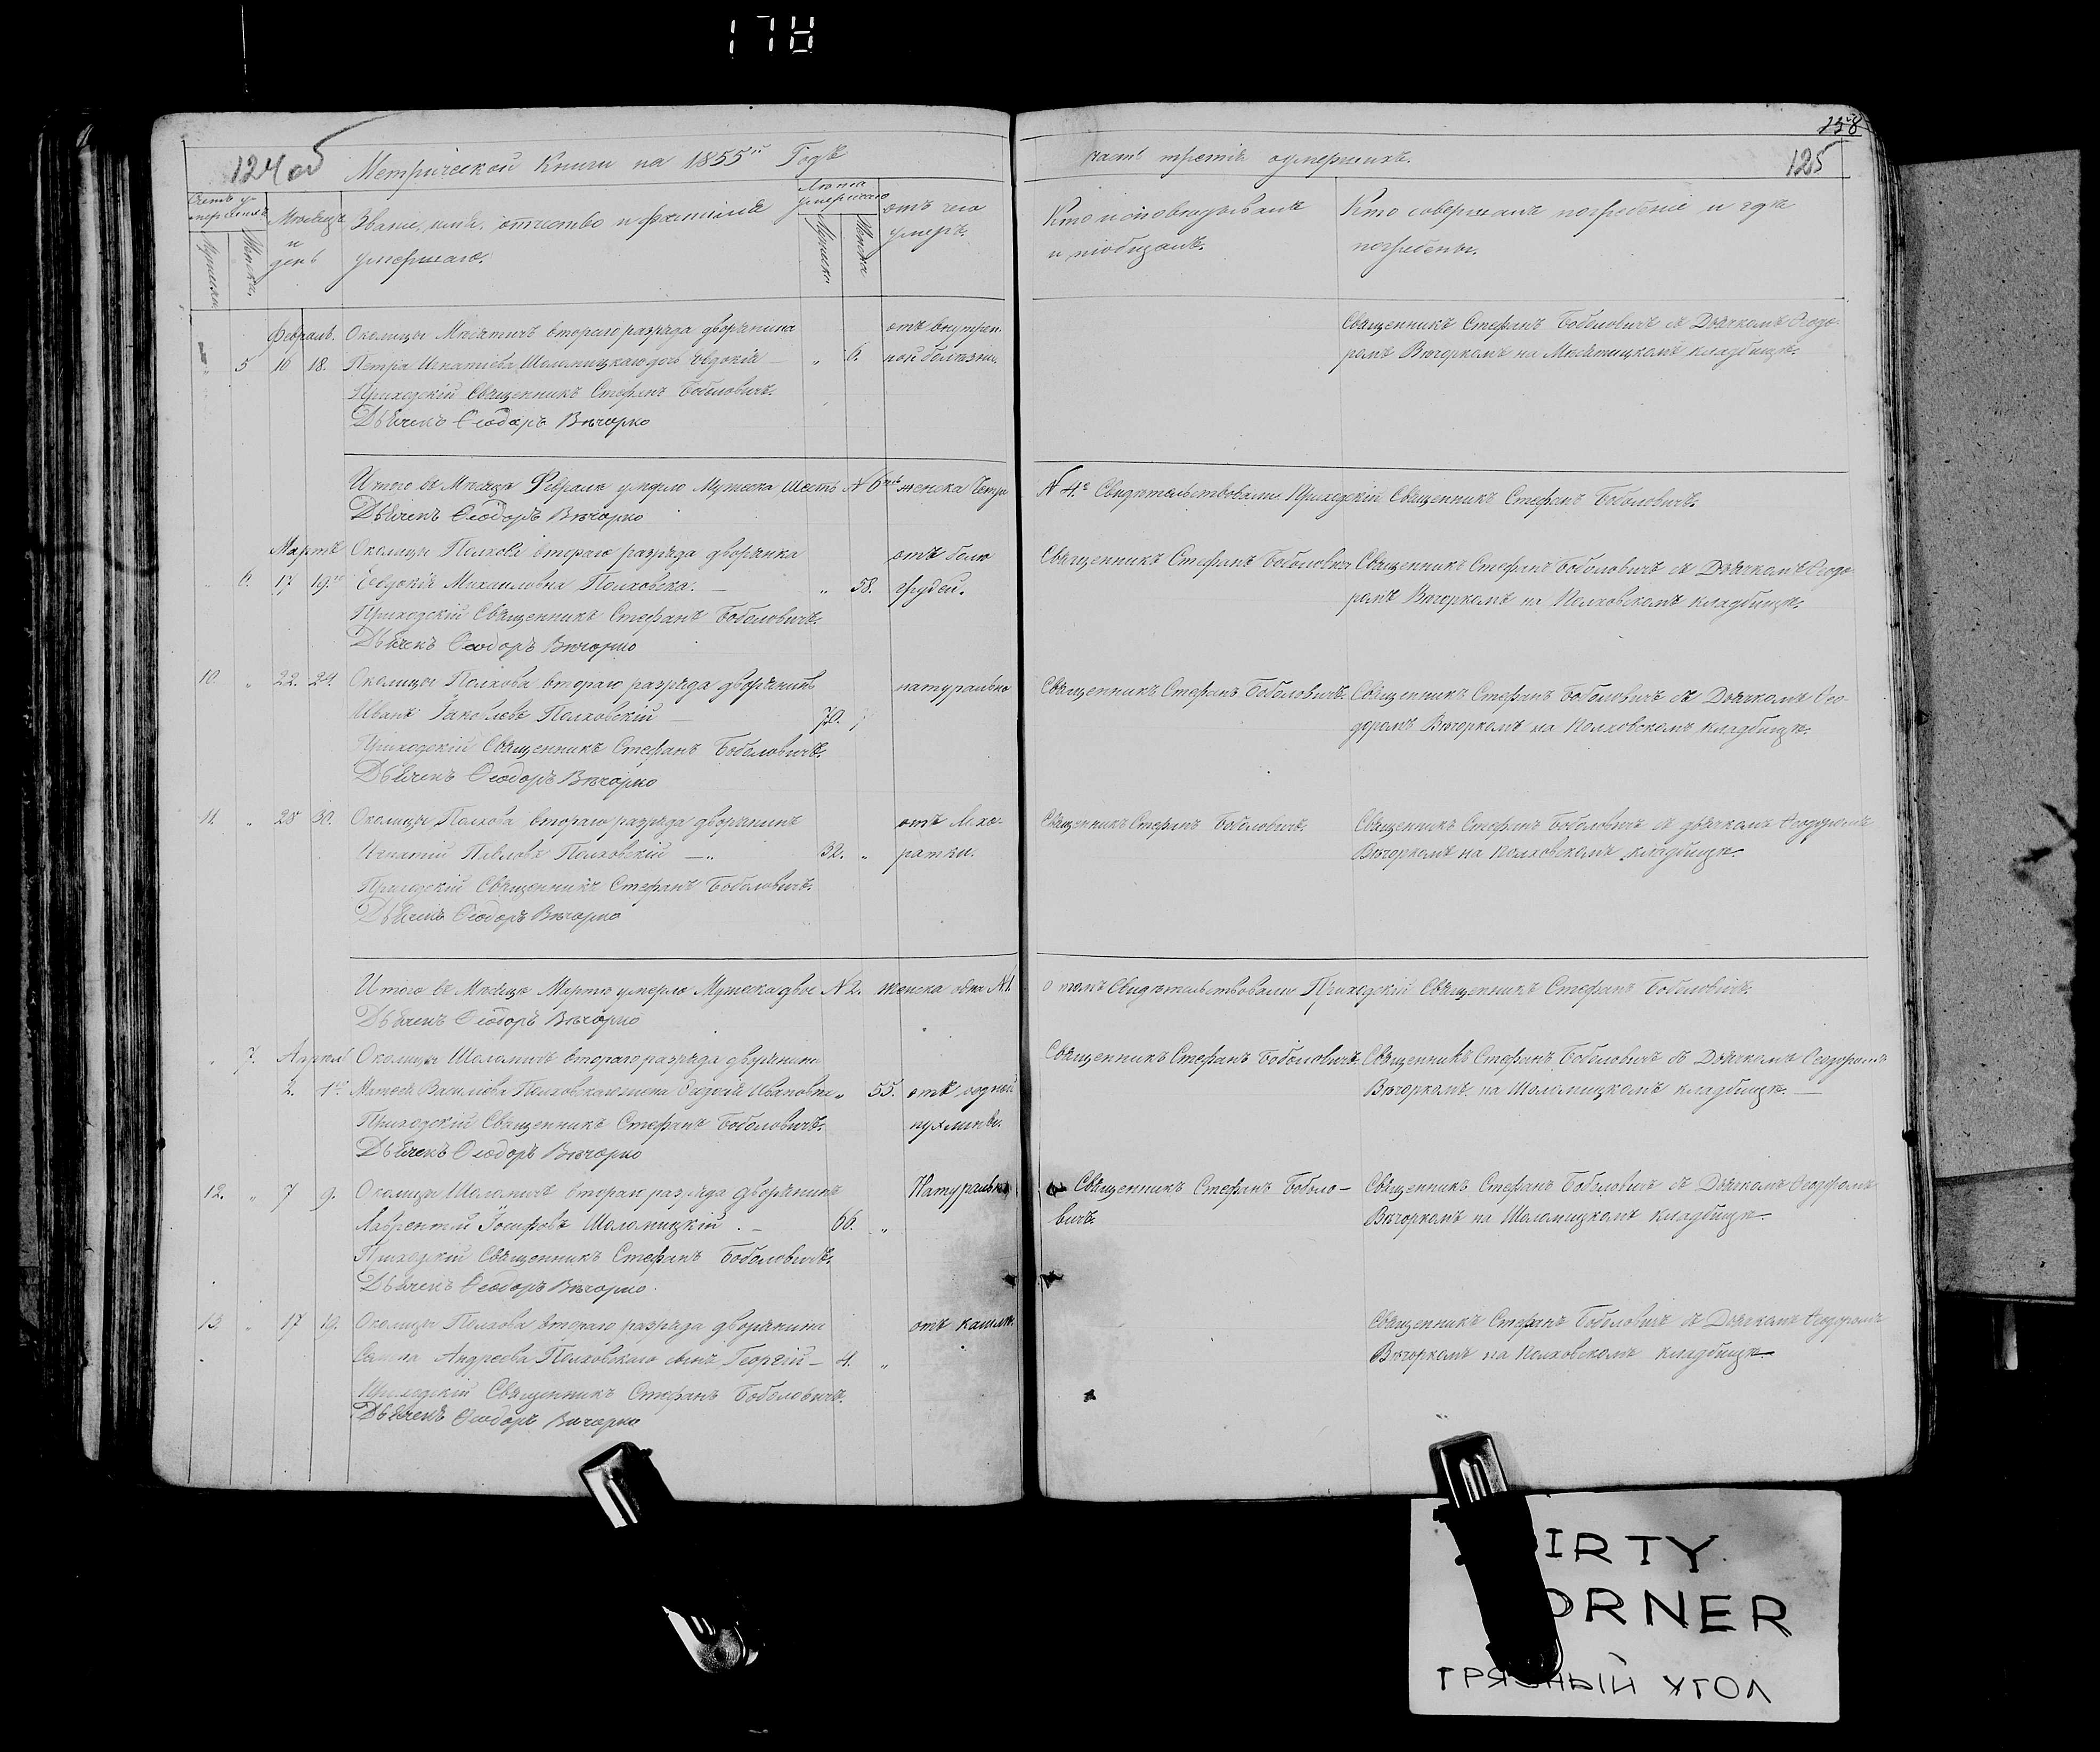 178
158
124 об
Метрической Книги на 1855й Годъ
часть третія о умершихъ.
125
Счетъ умершихъ
Мужеска
Женска
Мѣсяцъ и день
Званіе, имя, отчество и фамилія умершаго.
Лѣта умершаго
Мужеска
Женска
отъ чего умеръ.
Кто исповѣдывалъ и пріобщалъ.
Кто совершалъ погребеніе и гдѣ погребены.
Февраль. Околицы Мнѣтичъ втораго разряда дворянина отъ внутрен-
5 16 18. Петра Игнатіева дочь Евдокія „ 6. ной болѣзни.
Приходскій Священникъ Стефанъ Боболовичъ.
Дьячекъ Ѳеодоръ Вѣчорко
Священникъ Стефанъ Боболовичъ съ Дьячкомъ Ѳеодо-
ромъ Вѣчоркомъ на кладбищѣ.
Итого въ Мѣсяцѣ Февралѣ умерло Мужеска шесть № 6 женска четыре
№ 4. Свидѣтельствовали Приходскій Священникъ Стефанъ Боболовичъ.
Дьячекъ Ѳеодоръ Вѣчорко
Мартъ Околицы Полхова втораго разряда дворянка отъ боли
„ 6. 17 19. Евдокія Михаиловна Полховска. „ 58. грудей.
Приходскій Священникъ Стефанъ Боболовичъ.
Дьячекъ Ѳеодоръ Вѣчорко
Священникъ Стефанъ Боболовичъ
Священникъ Стефанъ Боболовичъ съ Дьячкомъ Ѳеодо-
ромъ Вѣчоркомъ на Полховскомъ кладбищѣ.
10. „ 22. 24. Околицы Полхова втораго разряда дворянинъ натурально
Иванъ Іаковлевъ Полховскій 70. „
Приходскій Священникъ Стефанъ Боболовичъ.
Дьячекъ Ѳеодоръ Вѣчорко
Священникъ Стефанъ Боболовичъ.
Священникъ Стефанъ Боболовичъ съ Дьячкомъ Ѳео-
доромъ Вѣчоркомъ на Полховскомъ кладбищѣ.
11. „ 28 30. Околицы Полхова втораго разряда дворянинъ отъ лихо-
Игнатій Павловъ Полховскій 32. „ ратки.
Приходскій Священникъ Стефанъ Боболовичъ.
Дьячекъ Ѳеодоръ Вѣчорко
Священникъ Стефанъ Боболовичъ.
Священникъ Стефанъ Боболовичъ съ дьячкомъ Ѳеодоромъ
Вѣчоркомъ на Полховскомъ кладбищѣ.
Итого въ Мѣсяцѣ Мартѣ умерло Мужеска два № 2. женска одна № 1.
о томъ Свидѣтельствовали Приходскій Священникъ Стефанъ Боболовичъ.
Дьячекъ Ѳеодоръ Вѣчорко
„ 7. Апрель Околицы Шоломичъ втораго разряда дворянина
2. 4. Матѳея Василіева Полховскаго жена Ивановна „ 55. отъ водной
Приходскій Священникъ Стефанъ Боболовичъ. пухлины.
Дьячекъ Ѳеодоръ Вѣчорко
Священникъ Стефанъ Боболовичъ.
Священникъ Стефанъ Боболовичъ съ Дьячкомъ Ѳеодоромъ
Вѣчоркомъ на Шоломицкомъ кладбищѣ.
12. „ 7 9. Околицы Шоломичъ втораго разряда дворянинъ Натурально
Лаврентій Іосифовъ Шоломицкій 66. „
Приходскій Священникъ Стефанъ Боболовичъ.
Дьячекъ Ѳеодоръ Вѣчорко
Священникъ Стефанъ Боболо-
вичъ.
Священникъ Стефанъ Боболовичъ съ Дьячкомъ Ѳеодоромъ
Вѣчоркомъ на Шоломицкомъ кладбищѣ.
13. „ 17 19. Околицы Полхова втораго разряда дворянина отъ кашля.
Андреева Полховскаго сынъ Георгій 4. „
Приходскій Священникъ Стефанъ Боболовичъ.
Дьячекъ Ѳеодоръ Вѣчорко
Священникъ Стефанъ Боболовичъ съ Дьячкомъ Ѳеодоромъ
Вѣчоркомъ на Полховскомъ кладбищѣ
IRTY
ORNER
ГРЯ НЫЙ УГОЛ